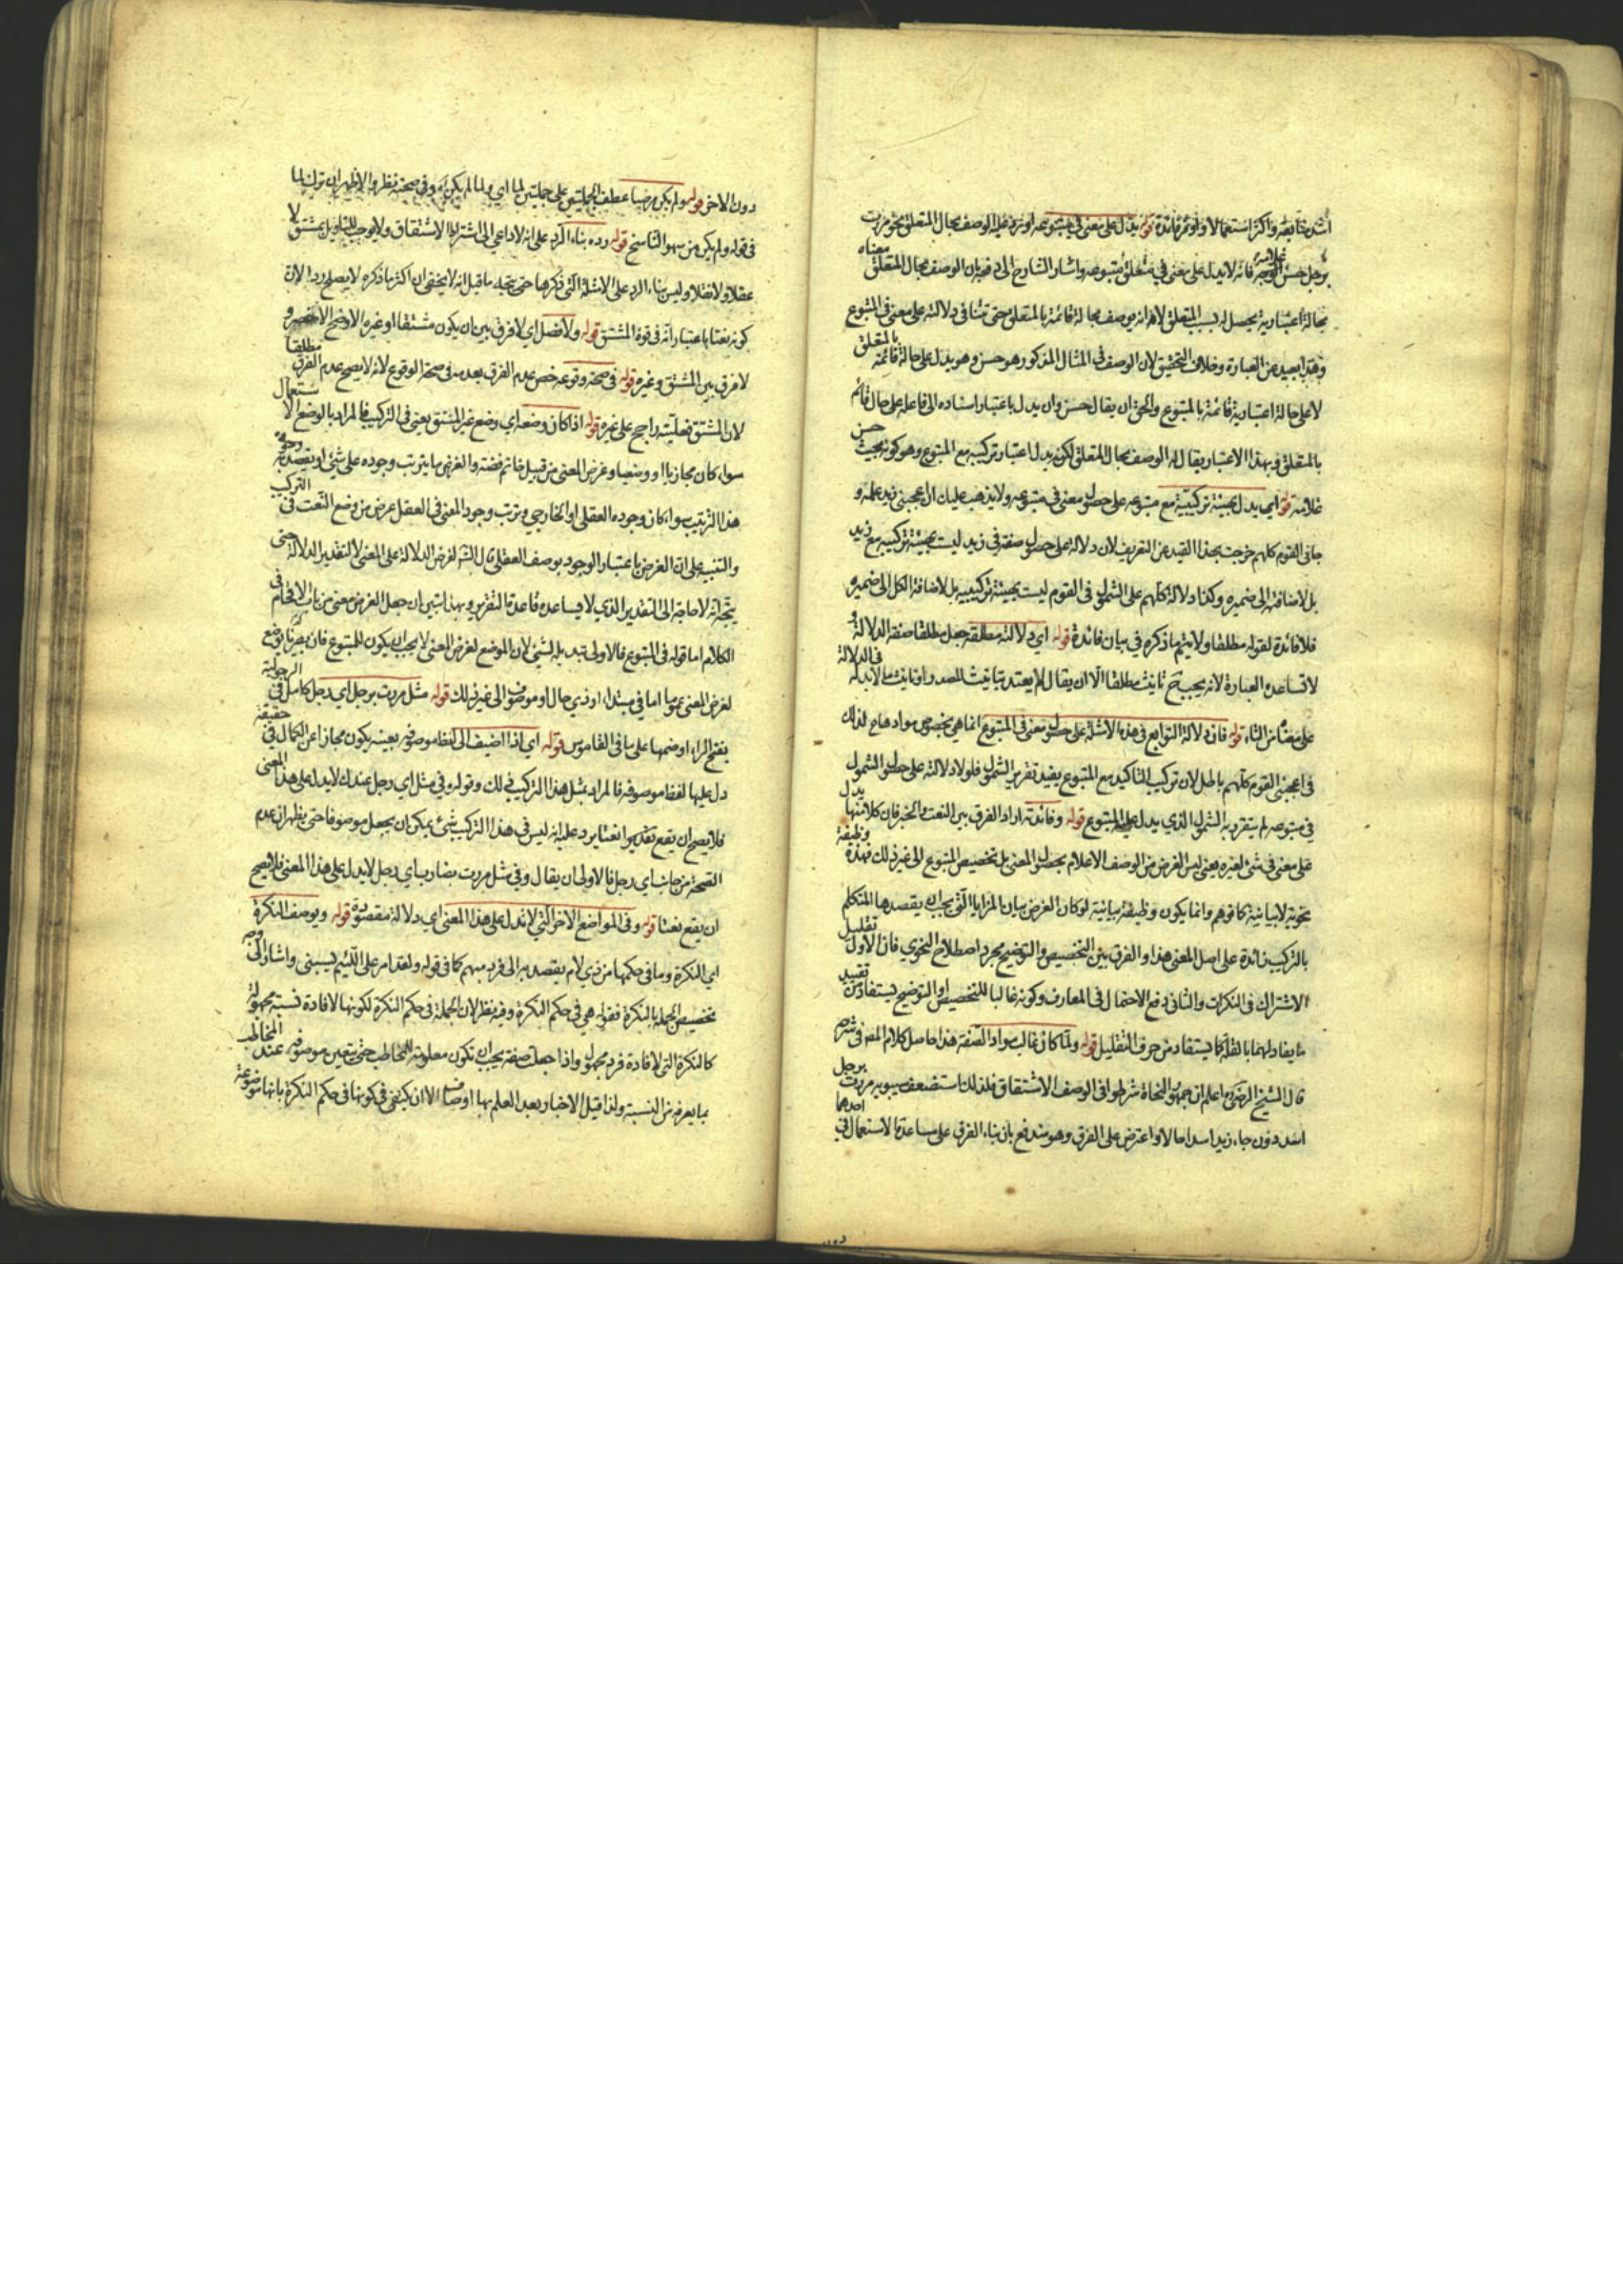 اشد متابعة واكثر استعمالا واوفر فائدة قوله يدل على معنى في متبوعه اورد عليه الوصف بحال المتعلق نحو مررت
برجل حسن غلامه فانه لا يدل على معنى في متبوعه واشار الشارح الى دفعه بان الوصف بحال المتعلق معناه
بحالة اعتبارية يحصل له بسبب المتعلق لا انه يوصف بحالة قائمة بالمتعلق حتى تنافى دلالته على معنى في المتبوع
وهذا بعيد عن العبارة وخلاف التحقيق لان الوصف في المثال المذكور هو حسن وهو يدل على حالة قائمة بالمتعلق
لا على حالة اعتبارية قائمة بالمتبوع والحق ان يقال حسن وان يدل باعتبار اسناده الى فاعله على حال قائم
بالمتعلق وبهذا الاعتبار يقال له الوصف بحال المتعلق لكن يدل باعتبار تركيبه مع المتبوع وهو كونه بحيث حسن
غلامه قوله اي يدل بهيئة تركيبية مع متبوعه على حصول معنى في متبوعه ولا يذهب عليك ان اعجبني زيد علمه و
جاءني القوم كلهم خرجت بهذا القيد عن التعريف لان دلالة على حصول صفة في زيد ليست بهيئة تركيبه مع زيد
بل لاضافته الى ضميره وكذا دلالة كلهم على الشمول في القوم ليست بهيئة تركيبية بل لاضافة الكل الى ضميره
فلا فائدة لقوله مطلقا ولا يتم ما ذكره في بيان فائدة قوله اي دلالة مطلقة جعل مطلقا صفة الدلالة و
لا تساعده العبارة لانه يجب ح تانيث مطلقا الا ان يقال لم يعتد بتانيث المصدر او تانيث ما لا يدل في الدلالة
على معناه من التاء قوله فان دلالة التوابع في هذه الامثلة على حصول معنى في المتبوع انما هي بخصوص موادها فلذلك
في اعجبني القوم كلهم باطل لان تركيب التاكيد مع المتبوع يفيد تقرير الشمول فلولا دلالته على حصول الشمول
في متبوعه لم يتقرر به الشمول الذي يدل عليه المتبوع قوله وفائدته اراد الفرق بين النعت والخبر فان كلا منهما يدل
على معنى في شئ لغيره يعني ليس الغرض من الوصف الاعلام بحصول المعنى بل تخصيص المتبوع الى غير ذلك فهذه وظيفة
نحوية لا بيانية كما توهم وانما يكون وظيفة بيانية لو كان الغرض بيان المزايا التي يجب ان يقصدها المتكلم
بالتركيب زائدة على اصل المعنى هذا والفرق بين التخصيص والتوضيح مجرد اصطلاح النحوي فان الاول تقليل
الاشتراك في النكرات والثاني دفع الاحتمال في المعارف وكونه غالبا للتخصيص او التوضيح يستفاد من تقييد
ما يقابلهما بالقلة كما يستفاد من حرف التقليل قوله ولما كان غالب مواد الصفة هذا حاصل كلام المص في شرحه
قال الشيخ الرضي اعلم ان جمهور النحاة شرطوا في الوصف الاشتقاق فلذلك استضعف سيبويه مررت برجل
اسد دون جاء زيد اسدا حالا واعترض على الفرق وهو مندفع بان بناء الفرق على مساعدة الاستعمال في احدهما
دون
دون الاخر قوله ولم يكن مرضيا عطف الجملتين على جملتين لما اي ولما لم يكن اه وفي صحته نظر والاظهر ان ترك لما
في قوله ولم يكن من سهو الناسخ قوله رده بناء الرد على انه لا داعي الى اشتراط الاشتقاق ولا يوجب التاويل بمشتق لا
عقلا ولا نقلا وليس بناء الرد على الامثلة التي ذكرها حتى يتجه ما قيل انه لا يخفى ان اكثر ما ذكره لا يصلح ردا لان
كونه نعتا باعتبار انه في قوة المشتق قوله ولا فصل اي لا فرق بين ان يكون مشتقا او غيره الاوضح الاخصر و
لا فرق بين المشتق وغيره قوله في صحة وقوعه خص عدم الفرق بعدمه في صحة الوقوع لانه لا يصح عدم الفرق مطلقا
لان المشتق فعليته راجح على غيره قوله اذا كان وضعه اي وضع غير المشتق يعني في التركيب فالمراد بالوضع الاستعمال
سواء كان مجازيا او وضعيا وغرض المعنى من قبيل خاتم فضة والغرض ما يترتب وجوده على شئ او يقصد به
هذا الترتيب سواء كان وجوده العقلي او الخارجي وترتب وجود المعنى في العقل غرض من وضع النعت في التركيب
والتنبيه على ان الغرض باعتبار الوجود بوصف العقلي قال الش لغرض الدلالة على المعنى لا لتقدير الدلالة حتى
يتجه انه لا حاجة الى التقدير الذي لا يساعده قاعدة التقرير وبهذا تبين ان جعل الغرض معنى من باب الاقحام في
الكلام اما قوله في المتبوع فالاولى تبديله لشئ لان الموضع لغرض المعنى لا يجب ان يكون للمتبوع فان وضع
لغرض المعنى عموما اما في مبتداء او ذي حال او موصوف الى غير ذلك قوله مثل مررت برجل اي رجل كامل في الرجولية
بفتح الراء او ضمها على ما في القاموس قوله اي اذا اضيف الى لفظ موصوفه بعينه يكون مجازا عن الكمال في حقيقة
دل عليها لفظ موصوفه فالمراد بمثل هذا التركيب ذلك وقوله وفي مثل اي رجل عندك لا يدل على هذا المعنى
فلا يصح ان يقع نعتا يرد عليه انه ليس في هذا التركيب شئ يمكن ان يجعل موصوفا حتى يظهر ان عدم
الصحة من جانب اي رجل فالاولى ان يقال وفي مثل مررت بضارب اي رجل لا يدل على هذا المعنى فلا يصح
ان يقع نعتا قوله وفي المواضع الاخر التي لا تدل على هذا المعنى اي دلالة مقصودة قوله ويوصف النكرة
اي النكرة وما في حكمها من ذي لام يقصد به الى فرد مبهم كما في قوله ولقد امر على اللئيم يسبني واشار الى وجه
تخصيص الجملة بالنكرة فقوله هي في حكم النكرة وفيه نظر لان الجملة في حكم النكرة لكونها لافادة نسبة مجهولة
كالنكرة التي لافادة فرد مجهول واذا جعلت صفة يجب ان تكون معلومة للمخاطب حتى يتعين موصوفه عند المخاطب
بما يعرفه من النسبة ولذا قيل الاخبار بعد العلم بها اوصاف الا ان يكتفى في كونها في حكم النكرة بانها موضوعة